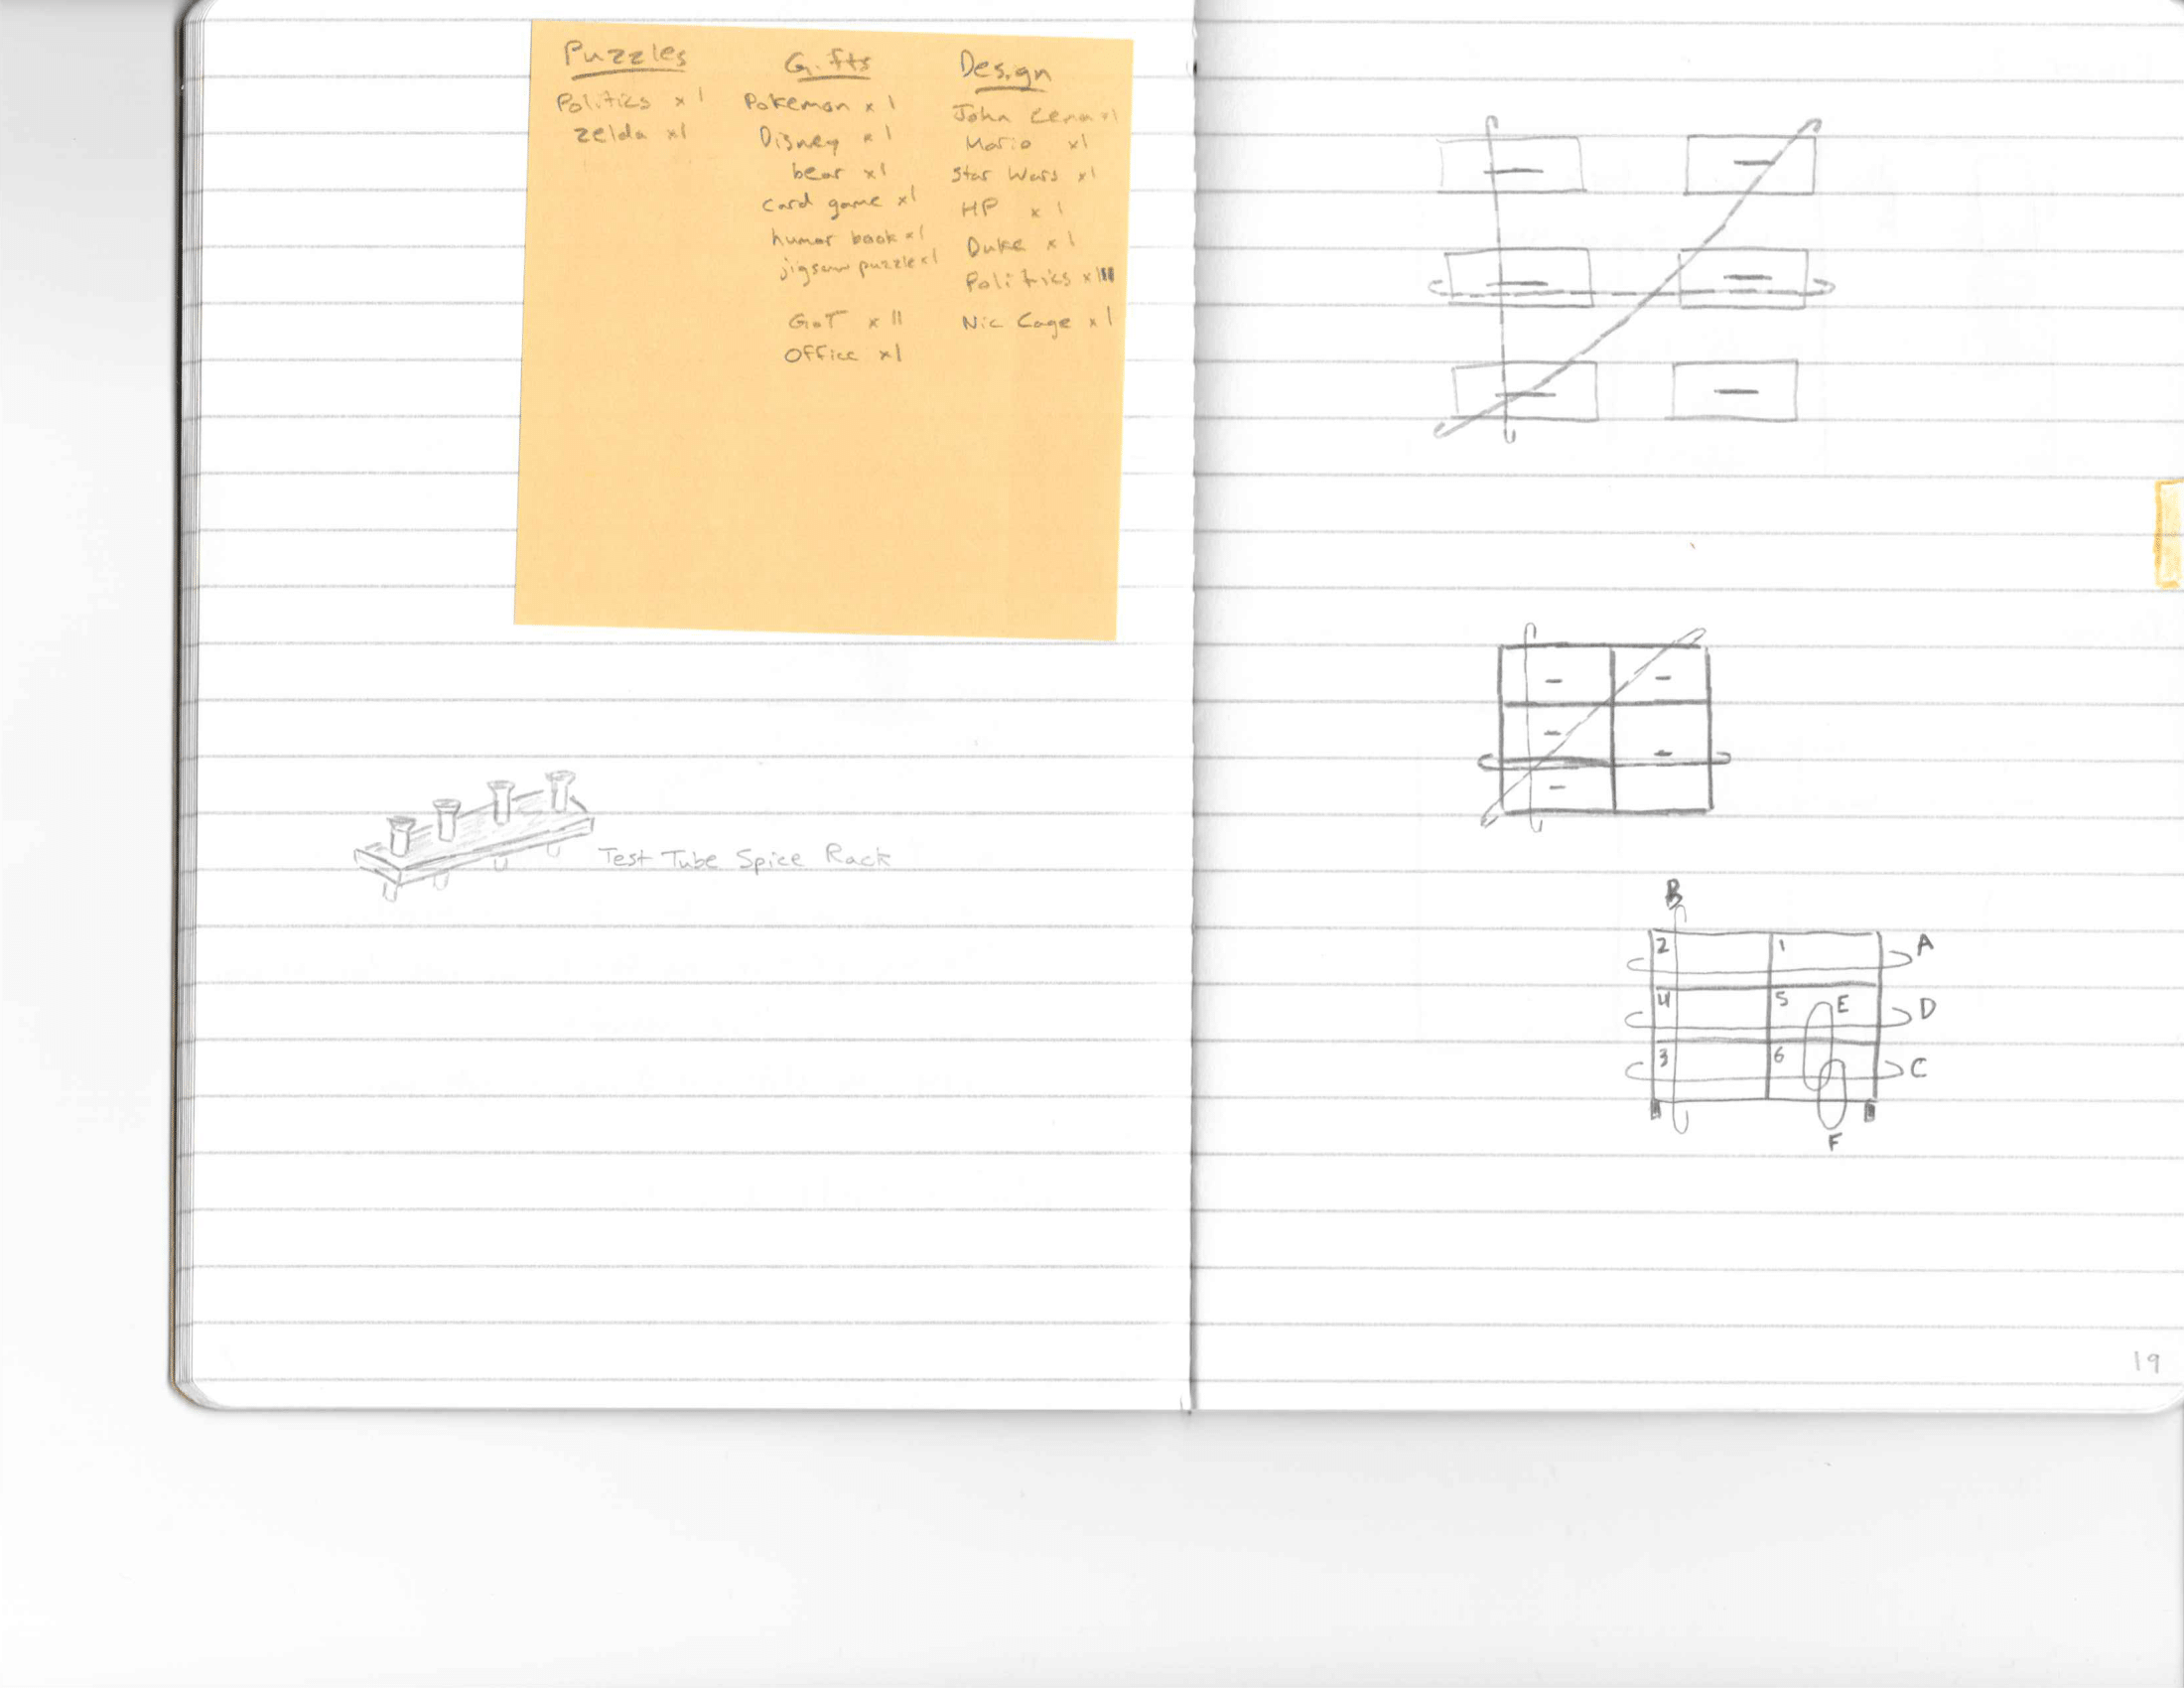 Puzzles
Politics x I
Zelda xI
Gifts
Pokemon x I
Disney x I
bear xI
card game xI
humor book xI
jigsaw puzzle xI
GoT x II
Office xI
Design
John Cena xI
Mario xI
Star Wars xI
HP x I
Duke x I
Politics xIII
Nic Cage x I
Test Tube Spice Rack
B
2 1 A
4 5 E D
3 6 C
F
19